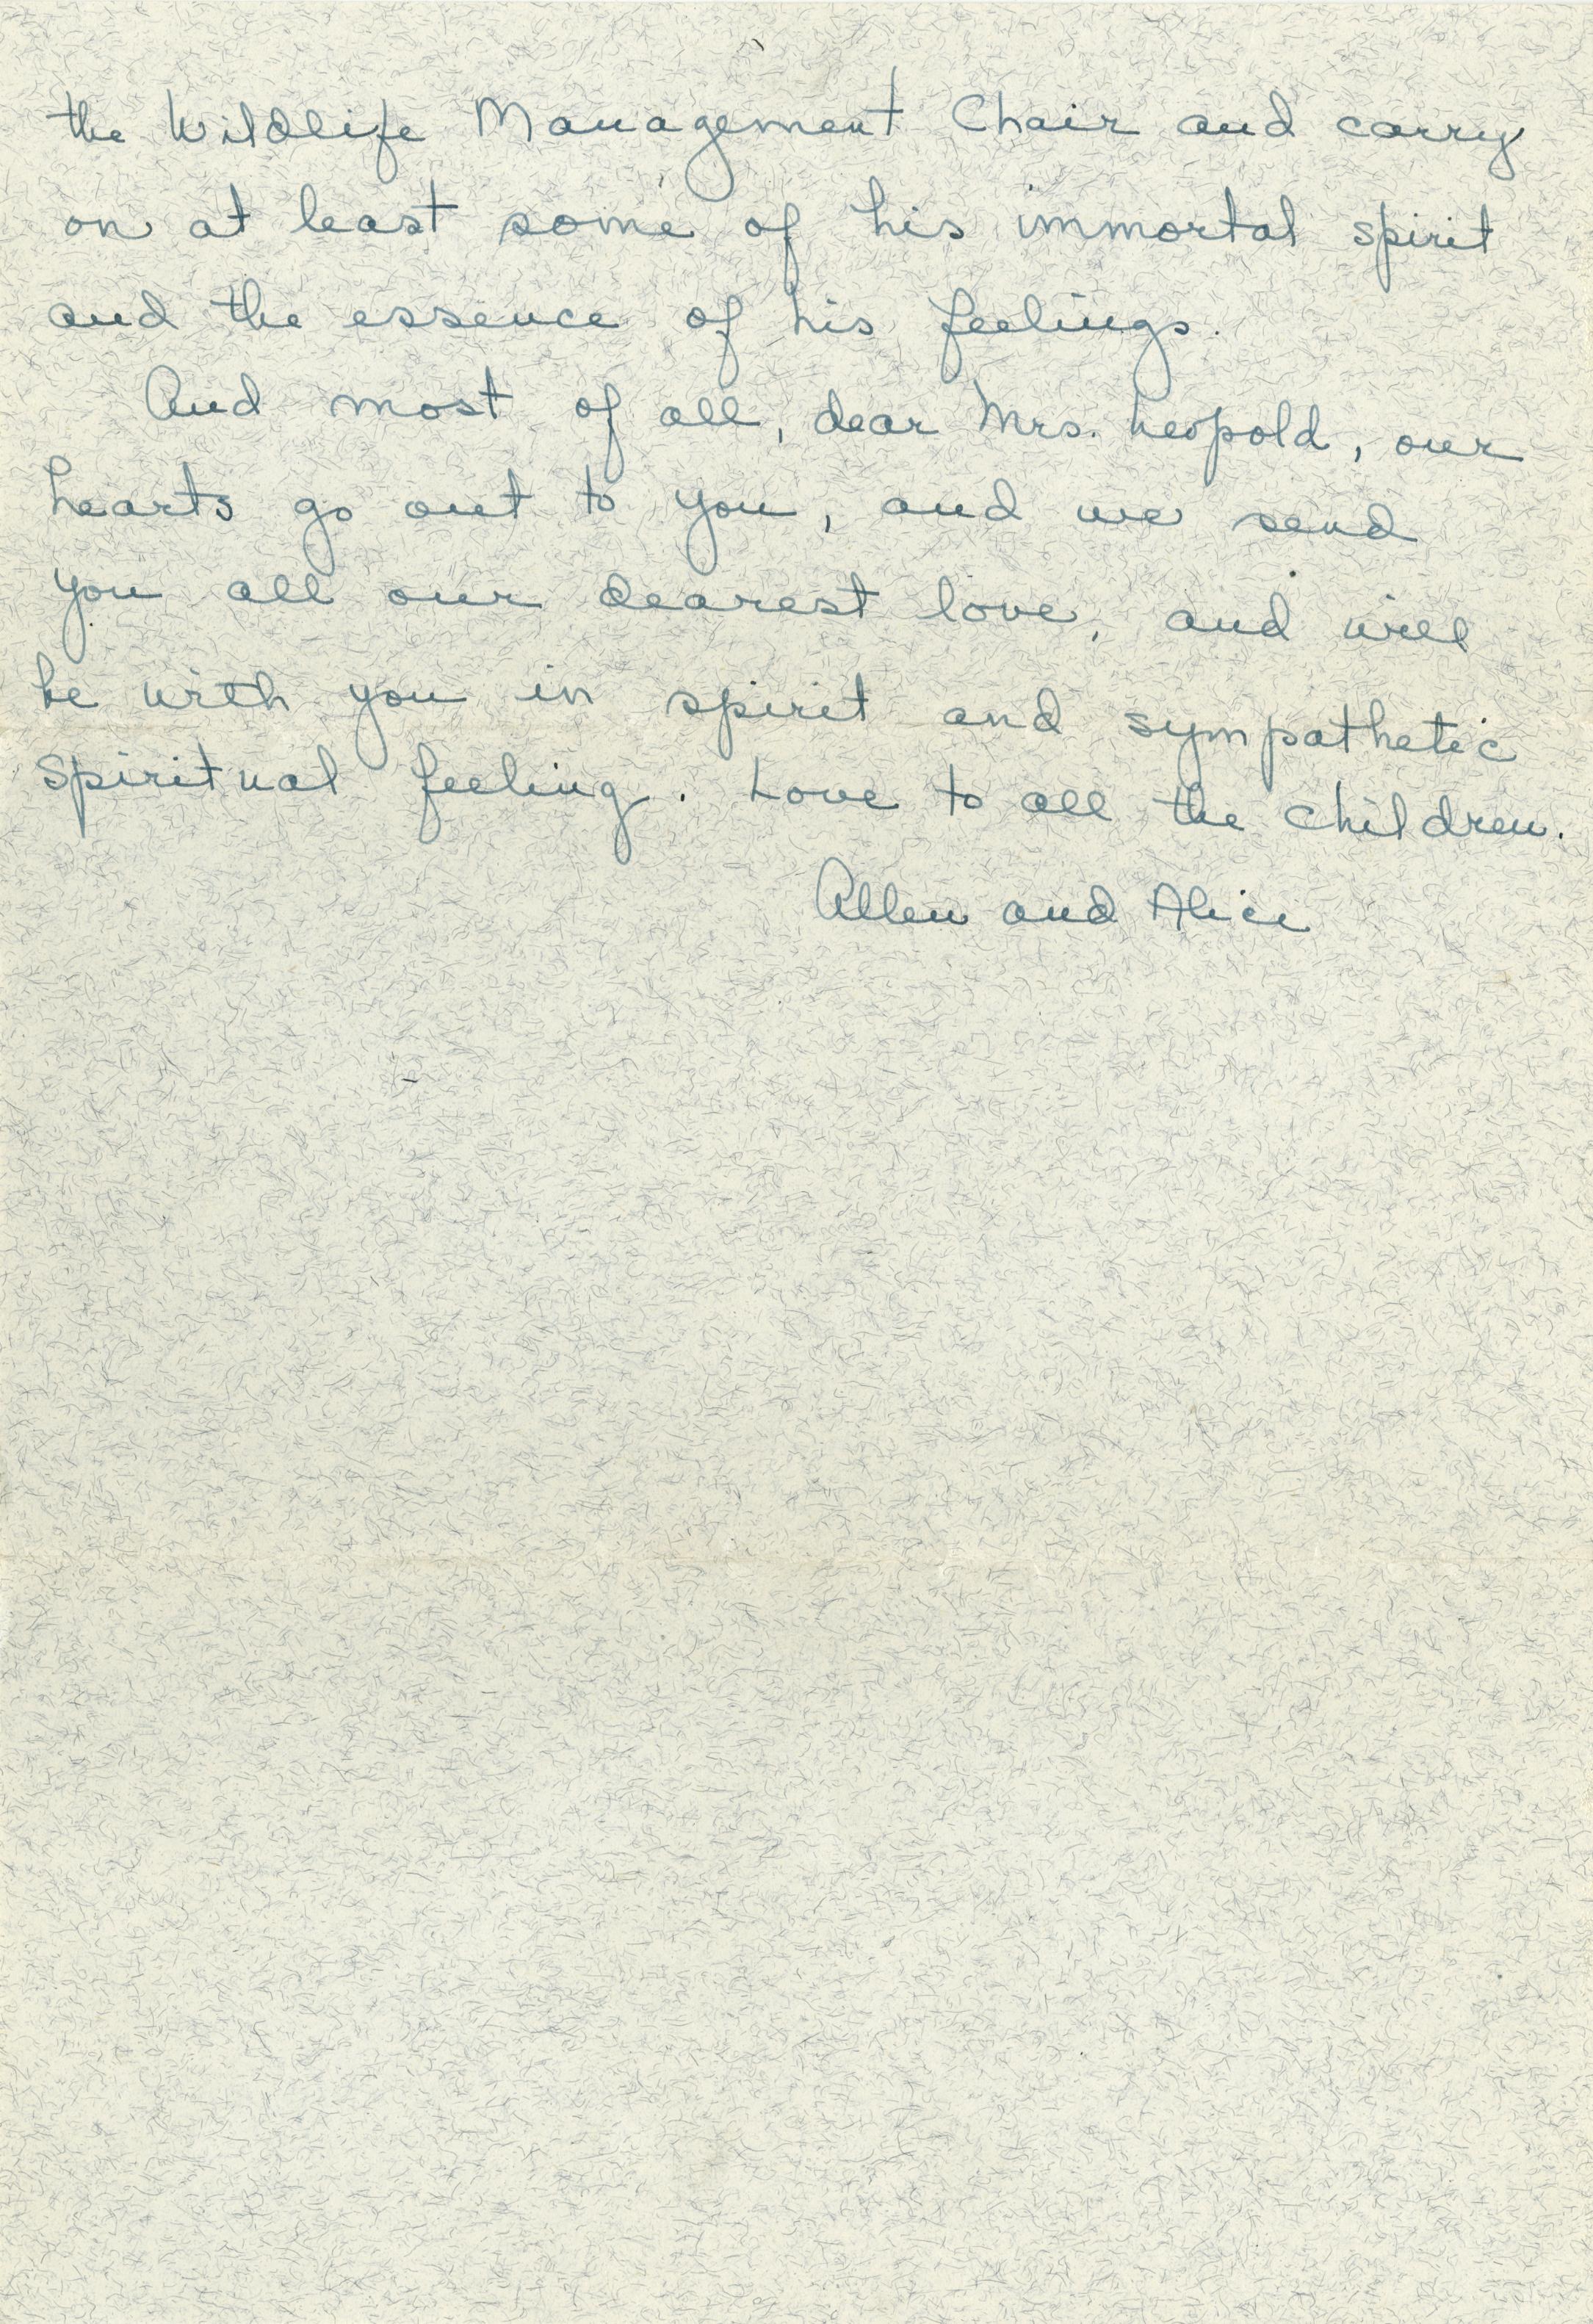 the Wildlife Management Chair and carry
on at least some of his immortal spirit
and the essence of his feelings.
And most of all, dear Mrs. Leopold, our
hearts go out to you, and we send
you all our dearest love, and will
be with you in spirit and sympathetic
spiritual feeling. Love to all the children.
Allen and Alice